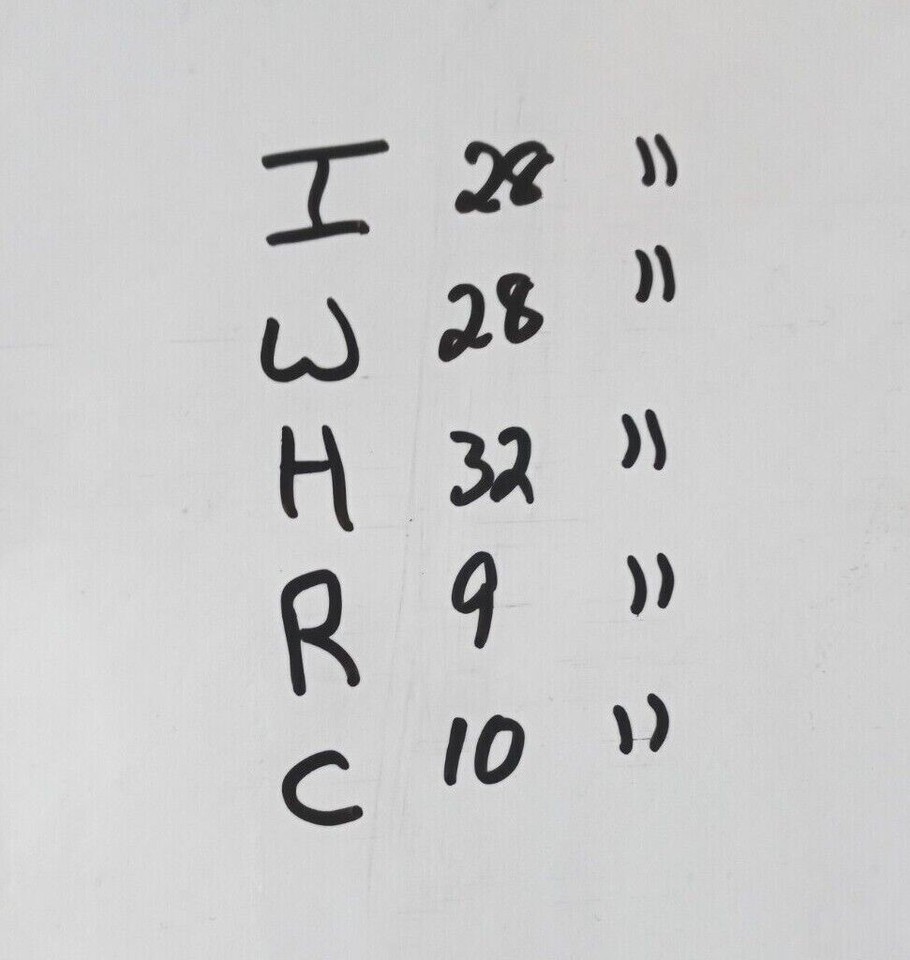 I 28 "
W 28 "
H 32 "
R 9 "
C 10 "